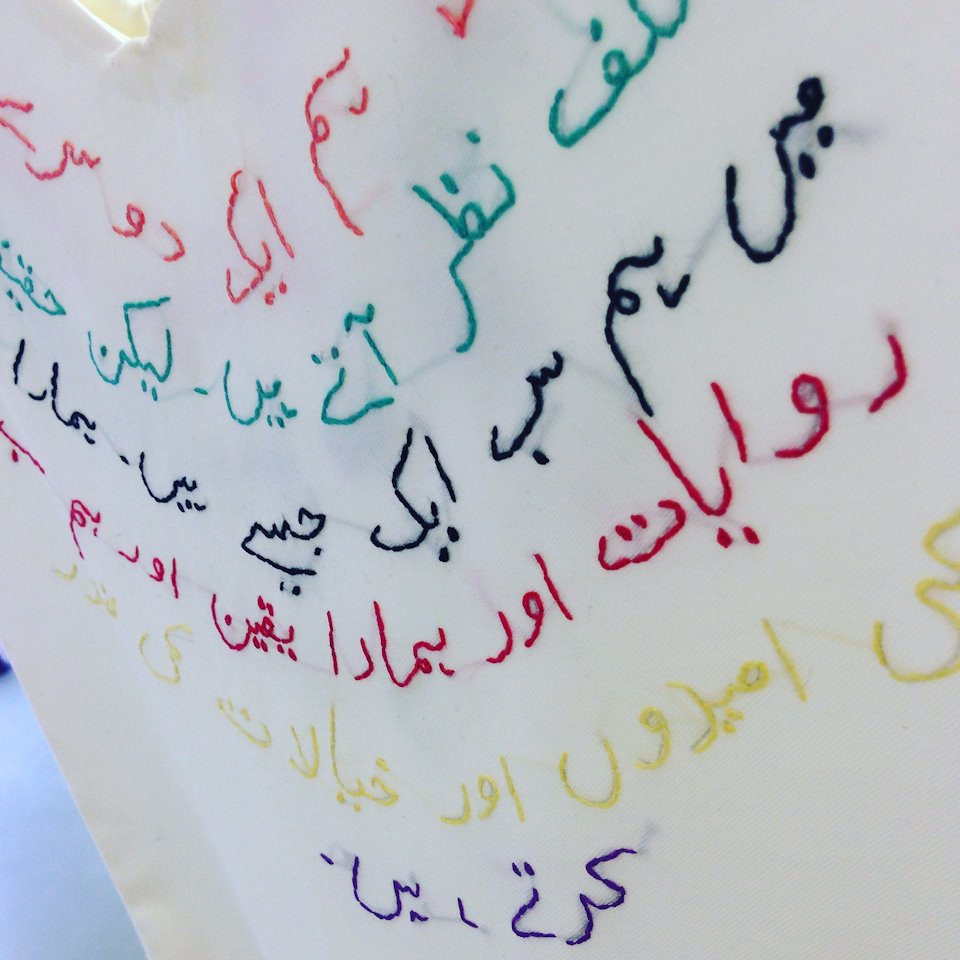 ہم ایک دوسرے
نظر آتے ہیں۔ لیکن
میں ہم سب ایک جیسے ہیں۔ ہمارا
روایات اور ہمارا یقین اور ہم
کی امیدوں اور خیالات کی قدر
کرتے ہیں۔